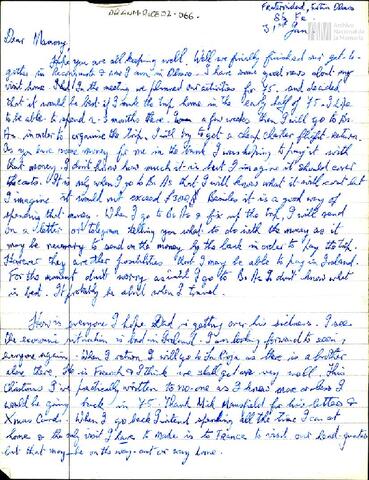 Fraternidad, Fortin Olmos
Sta Fe.
31st Jan
Archivo
Nacional de
la Memoria
Dear Mammy,
Hope you are all keeping well. We've finally finished our get-to-
gether in and now I am in Olmos. I have some good news about my
visit home. In the meeting we planned our activities for 75. and decided
that it would be best if I took the trip home in the early half of 75. I hope
to be able to spend 2-3 months there. In a few weeks then I will go to Bs.
As. in order to organise the trip. I will try to get a cheap charter flight return.
As you have some money for me in the bank I was hoping to pay it with
that money. I don't know how much it is but I imagine it should cover
the costs. It is only when I go to Bs. As that I will know what it will cost but
I imagine it would not exceed £300. Besides it is a good way of
spending that money. When I go to Bs. As & fix up the trip, I will send
on a letter or telegram telling you what to do with the money as it
may be necessary to send on the money by the bank in order to pay the trip.
However they are other possibilities that I may be able to pay in Ireland.
For the moment don't worry as until I go to Bs. As I don't know what
is best. It probably be April when I travel.
How's everyone I hope Dad is getting over his sickness. I see
the economic situation is bad in Ireland. I am looking forward to seeing
everyone again. When I return I will go to La Rioja as there is a brother
alone there. He is French & I think we shall get on very well. This
Christmas I've practically written to no-one as I knew more or less I
would be going back in 75. Thank Mick Mansfield for his letters &
Xmas Card. When I go back I intend spending all the time I can at
home & the only visit I have to make is to France to visit our head-quarters
but that may be on the way out or way home.